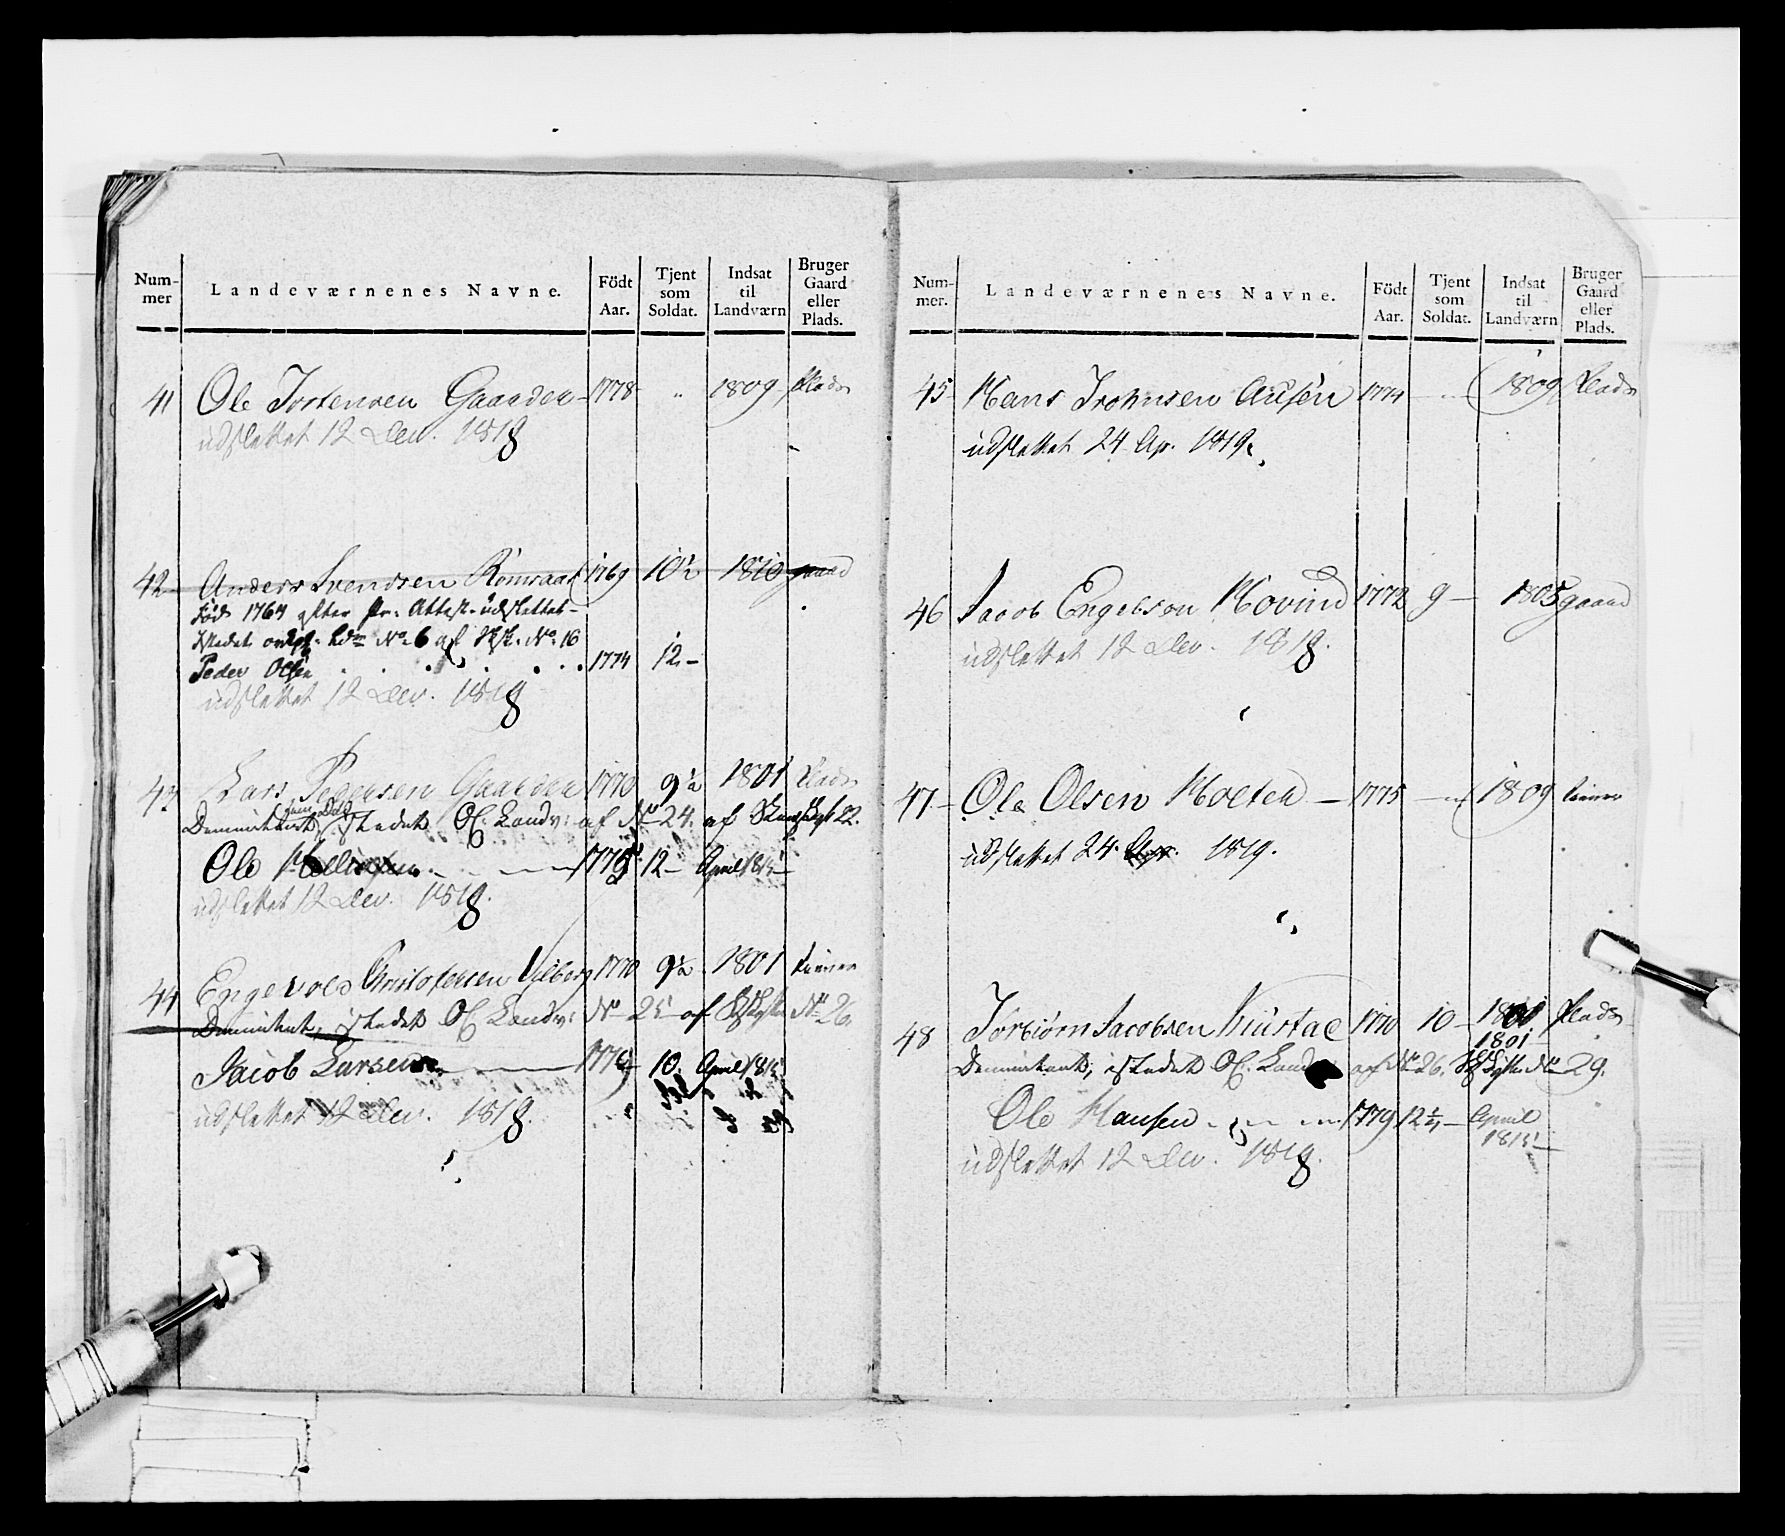 Num-
mer
Landeværnenes Navne.
Födt
Aar.
Tjent
som
Soldat.
Indsat
til
Landværn
Bruger
Gaard
eller
Plads.
41 Ole Tostensen Gaarder 1778 " 1809 Plads
udslettet 12 Dec. 1818
42 Anders Svendsen 1769 10½ 1810 gaard
Föd 1764 efter Pr. Attest. udslettet
istedet No 6 af No 16
Peder Olsen 1774 12
udslettet 12 Dec. 1818
43 Lars Pedersen Gaarder 1770 9½ 1801 Plads
Demiteret istedet Landv: af No 24. af 22.
Ole 1775 12 April 1815
udslettet 12 Dec. 1818.
44 Engevold Cristofersen Vilberg 1770 9½ 1801
Demiteret, istedet Landv: No 25 af No 26.
Jacob Larsen 10. April 1815
udslettet 12 Dec. 1818.
Num-
mer.
Landeværnenes Navne.
Födt
Aar.
Tjent
som
Soldat.
Indsat
til
Landværn
Bruger
Gaard
eller
Plads.
45 Hans Trohnsen 1774 " 1809 Plads
udslettet 24 Ap. 1819.
46 Jacob Engebson Hovind 1772 9 1805 gaard
udslettet 12 Dec. 1818.
47 Ole Olsen Holter 1775 " 1809
udslettet 24 Apr. 1819.
48 Torbiörn Jacobsen 1770 10 1801 Plads
1801
Demiteret, istedet af No 26. No 29.
Ole Hansen 1779 12½ April
1815
udslettet 12 Dec. 1818.